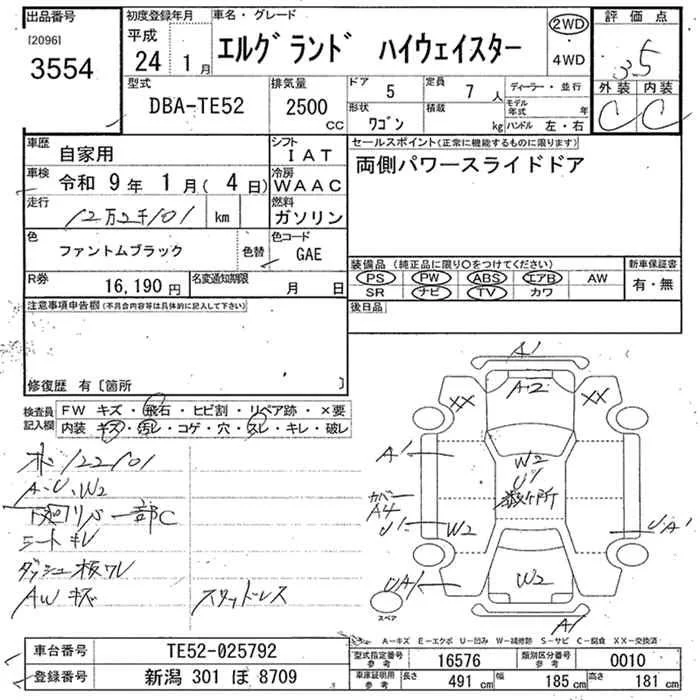 出品番号
[2096]
3554
初度登録年月
平成
24年 1月
車名・グレード
エルグランド ハイウェイスター
2WD
・
4WD
評価点
3.5
外装 内装
C C
型式
DBA-TE52
排気量
2500 CC
ドア 5
定員 7人
形状 ワゴン
積載 kg
ディーラー・並行
モデル年式 年
ハンドル 左・右
車歴 自家用
シフト IAT
車検 令和 9年 1月( 4日)
冷房 WAAC
走行 12万2千101 km
燃料 ガソリン
色 ファントムブラック 色替
色コード GAE
R券 16,190円
名変通知期限 月 日
セールスポイント(正常に機能するものに限ります)
両側パワースライドドア
装備品(純正品に限り○をつけてください)
PS PW ABS エアB AW
SR ナビ TV カワ
新車保証書
有・無
後日品
注意事項申告欄(不具合内容等は具体的に記入して下さい)
修復歴 有〔箇所 〕
検査員記入欄
FW キズ・飛石・ヒビ割・リペア跡・×要
内装 キズ・汚レ・コゲ・穴・スレ・キレ・破レ
122101
A・U、W2
下廻リ 一部C
シートキレ
ダッシュ板ワレ
AWキズ
スタッドレス
A1
A2
XX XX
A1
W2
U1
数ケ所
カバー
A4
U1
W2
UA1
UA1
W2
A1
スペア
A-キズ E-エクボ U-凹み W-補修跡 S-サビ C-腐食 XX-交換済
車台番号 TE52-025792
登録番号 新潟 301 ほ 8709
型式指定番号 参考 16576
類別区分番号 参考 0010
車庫証明用 参考 長さ 491cm 幅 185cm 高さ 181cm